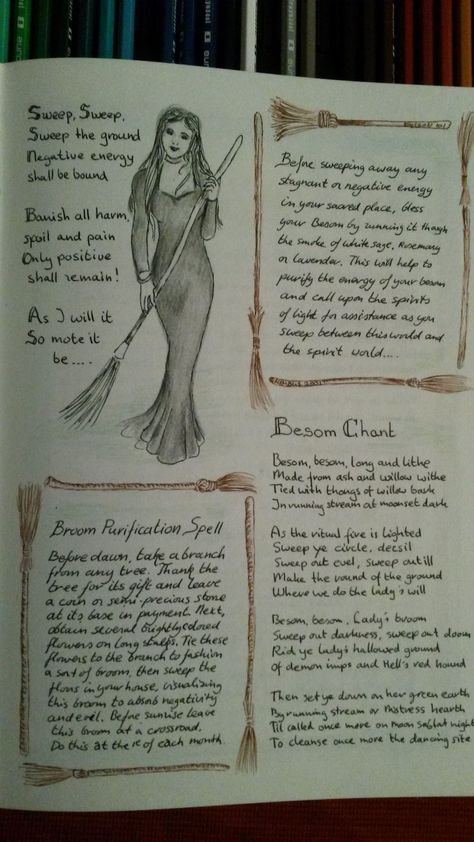 Sweep, Sweep,
Sweep the ground
Negative energy
shall be bound
Banish all harm,
spoil and pain
Only positive
shall remain!
As I will it
So mote it
be....
Before sweeping away any
stagnant or negative energy
in your sacred place, bless
your Besom by running it through
the smoke of white sage, Rosemary
or lavender. This will help to
purify the energy of your besom
and call upon the spirits
of light for assistance as you
sweep between this world and
the spirit world....
Besom Chant
Besom, besom, long and lithe
Made from ash and willow withe
Tied with thongs of willow bark
In running stream at moonset dark
As the ritual fire is lighted
Sweep ye circle, deosil
Sweep out evil, sweep out ill
Make the round of the ground
Where we do the lady's will
Besom, besom, Lady's broom
Sweep out darkness, sweep out doom
Rid ye Lady's hallowed ground
of demon imps and Hell's red hound
Then set ye down on her green earth
By running stream or Mistress hearth
Til called once more on moon sabbat night
To cleanse once more the dancing site
Broom Purification Spell
Before dawn, take a branch
from any tree. Thank the
tree for its gift and leave
a coin or semi-precious stone
at its base in payment. Next,
obtain several brightly colored
flowers on long stems. Tie these
flowers to the branch to fashion
a sort of broom, then sweep the
floors in your house, visualizing
this broom to absorb negativity
and evil. Before sunrise leave
this broom at a crossroad.
Do this at the 1e of each month.